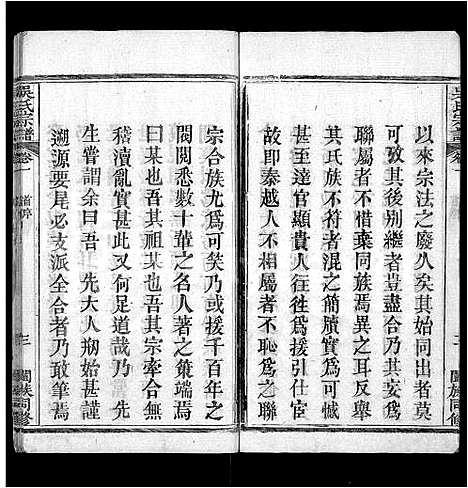 以來宗法之廢人矣其始同出者
而其後別繼者豈盡合乎於是為
聯屬者不惜棄同族焉異之耳反舉
其氏族不符者混之簡牘實為可憾
甚至達官貴人徃徃為其宗嗣引仕宦
不泰越人不相屬者不恥為之聯
宗合族尤為可矣乃或援千百年之
閥閱悉數十輩之名人著之簡端焉
曰某也為吾祖某也吾其宗牽合無
稽瀆亂實甚又何足道哉乃　先
生嘗謂余曰吾　先大人剏始甚謹
遡源要尾必支派全合者乃敢筆焉
吳氏宗譜
卷一
首
三
闔族同修